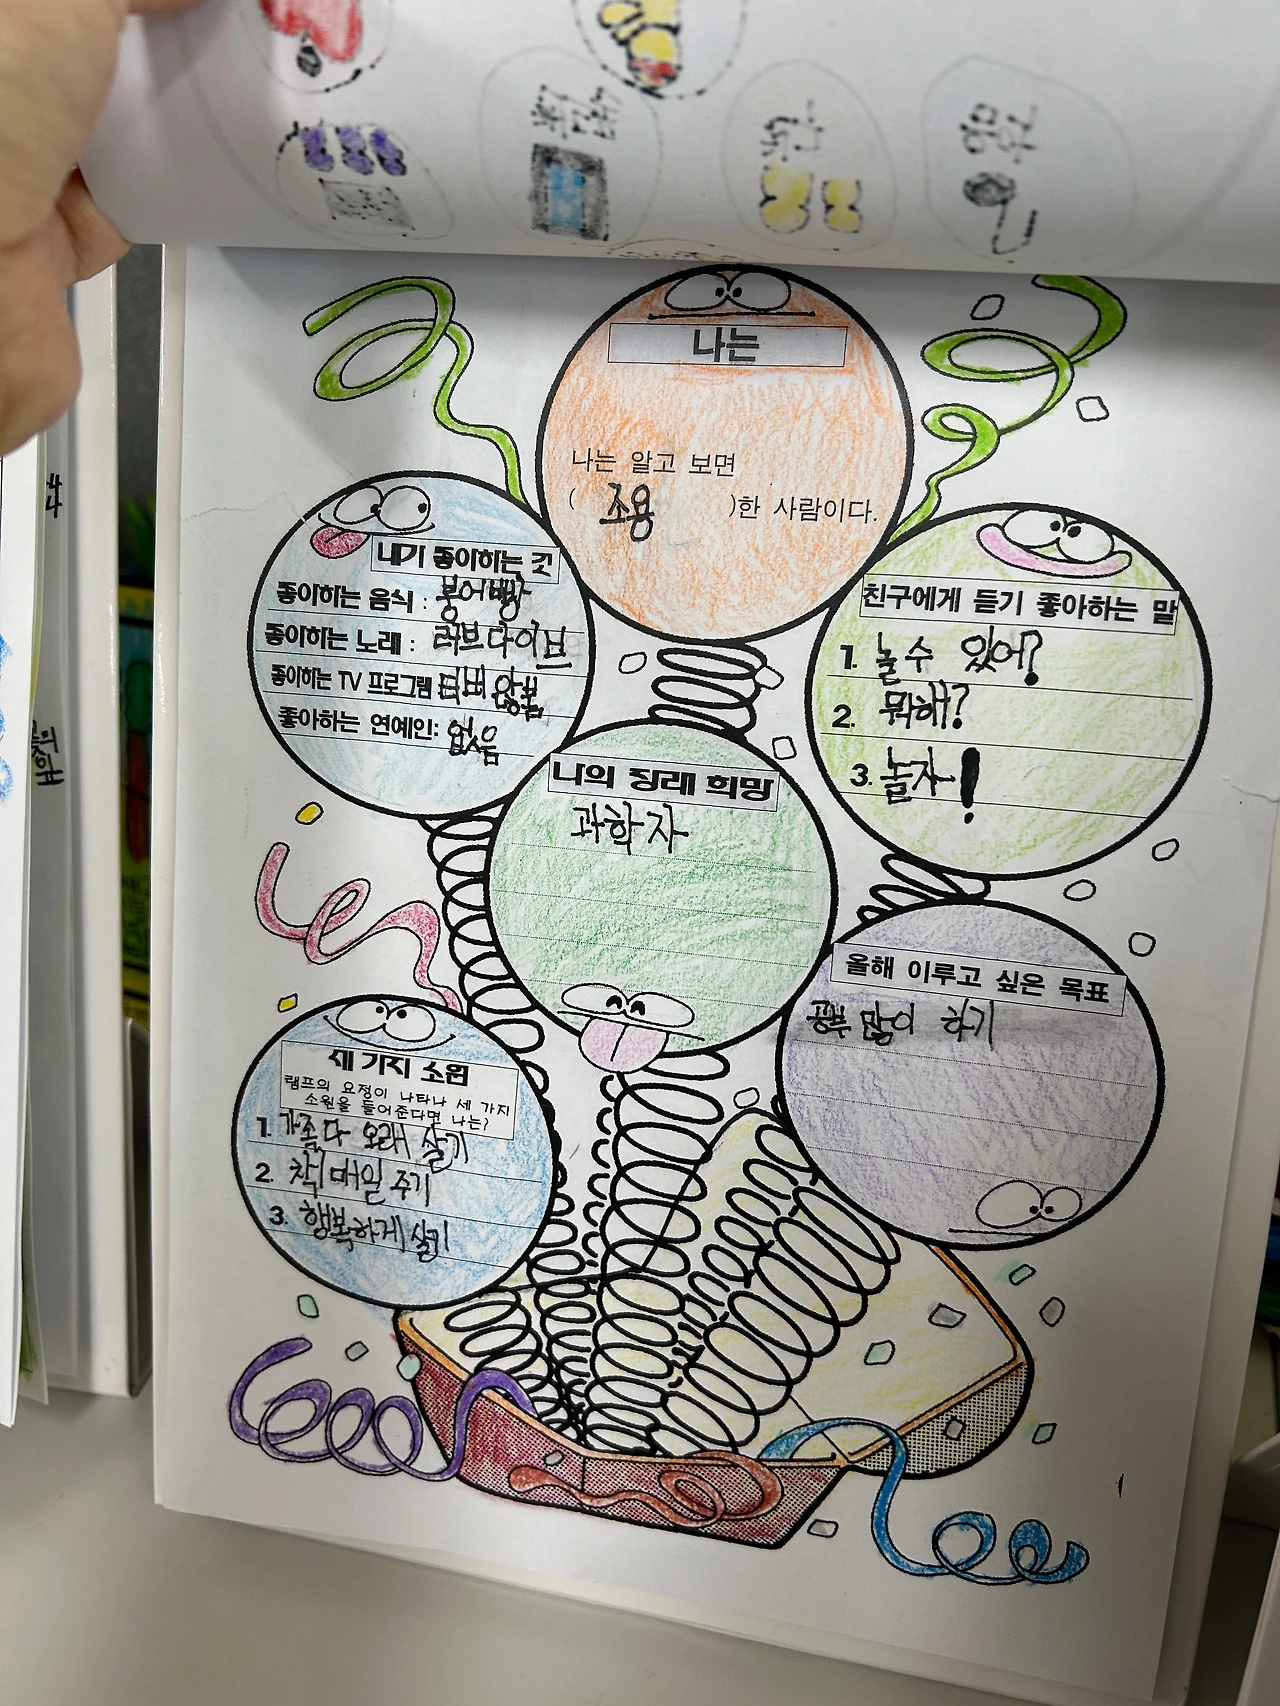 나는
나는 알고 보면
( 조용 )한 사람이다.
내가 좋아하는 것
좋아하는 음식 : 붕어빵
좋아하는 노래 : 러브다이브
좋아하는 TV 프로그램 티비 않봄
좋아하는 연예인: 없음
친구에게 듣기 좋아하는 말
1. 놀수 있어?
2. 뭐해?
3. 놀자!
나의 장래 희망
과학자
올해 이루고 싶은 목표
공부 많이 하기
세 가지 소원
램프의 요정이 나타나 세 가지
소원을 들어준다면 나는?
1. 가족다 오래 살기
2. 책 매일 주기
3. 행복하게 살기